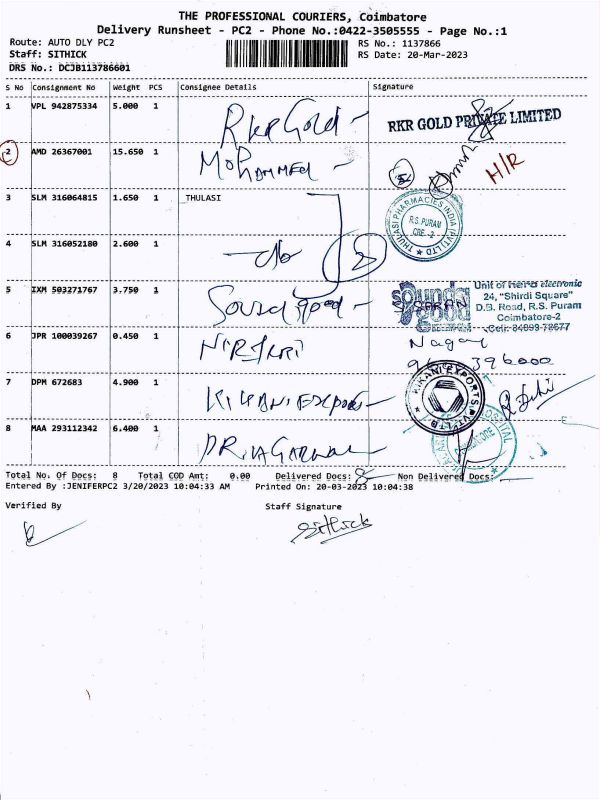 THE PROFESSIONAL COURIERS, Coimbatore
Delivery Runsheet - PC2 - Phone No.:0422-3505555 - Page No.:1
Route: AUTO DLY PC2
RS No.: 1137866
Staff: SITHICK
RS Date: 20-Mar-2023
DRS No.: DCJB113786601
S No Consignment No Weight PCS Consignee Details Signature
1 VPL 942875334 5.000 1 RKR Gold - RKR GOLD PRIVATE LIMITED
2 AMD 26367001 15.650 1 MOHAMMED - H/R
3 SLM 316064815 1.650 1 THULASI
THULASI PHARMACIES INDIA (PVT) LTD
R.S. PURAM
CBE - 2
4 SLM 316052180 2.600 1 2
5 IXM 503271767 3.750 1 Sound good -
sounds good
Unit of hero electronic
24, "Shirdi Square"
D.B. Road, R.S. Puram
Coimbatore-2
6 JPR 100039267 0.450 1
7 DPM 672683 4.900 1 KIKANI EXPORTS
KIKANI EXPORTS (PVT) LTD
8 MAA 293112342 6.400 1 DR. AGARWAL
HOSPITAL
Total No. Of Docs: 8 Total COD Amt: 0.00 Delivered Docs: 8 Non Delivered Docs: -
Entered By :JENIFERPC2 3/20/2023 10:04:33 AM Printed On: 20-03-2023 10:04:38
Verified By Staff Signature
Sithick